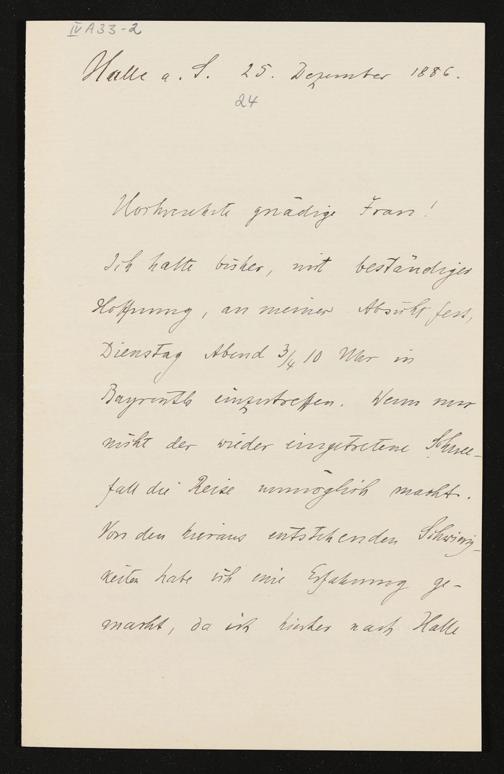 IV A 33-2
Halle a. S. 25. Dezember 1886.
24
Hochverehrte gnädige Frau!
Ich halte bisher, mit beständiger
Hoffnung, an meiner Absicht fest,
Dienstag Abend 3/4 10 Uhr in
Bayreuth einzutreffen. Wenn nur
nicht der wieder eingetretene Schnee-
fall die Reise unmöglich macht.
Von den hieraus entstehenden Schwierig-
keiten habe ich eine Erfahrung ge-
macht, da ich hierher nach Halle